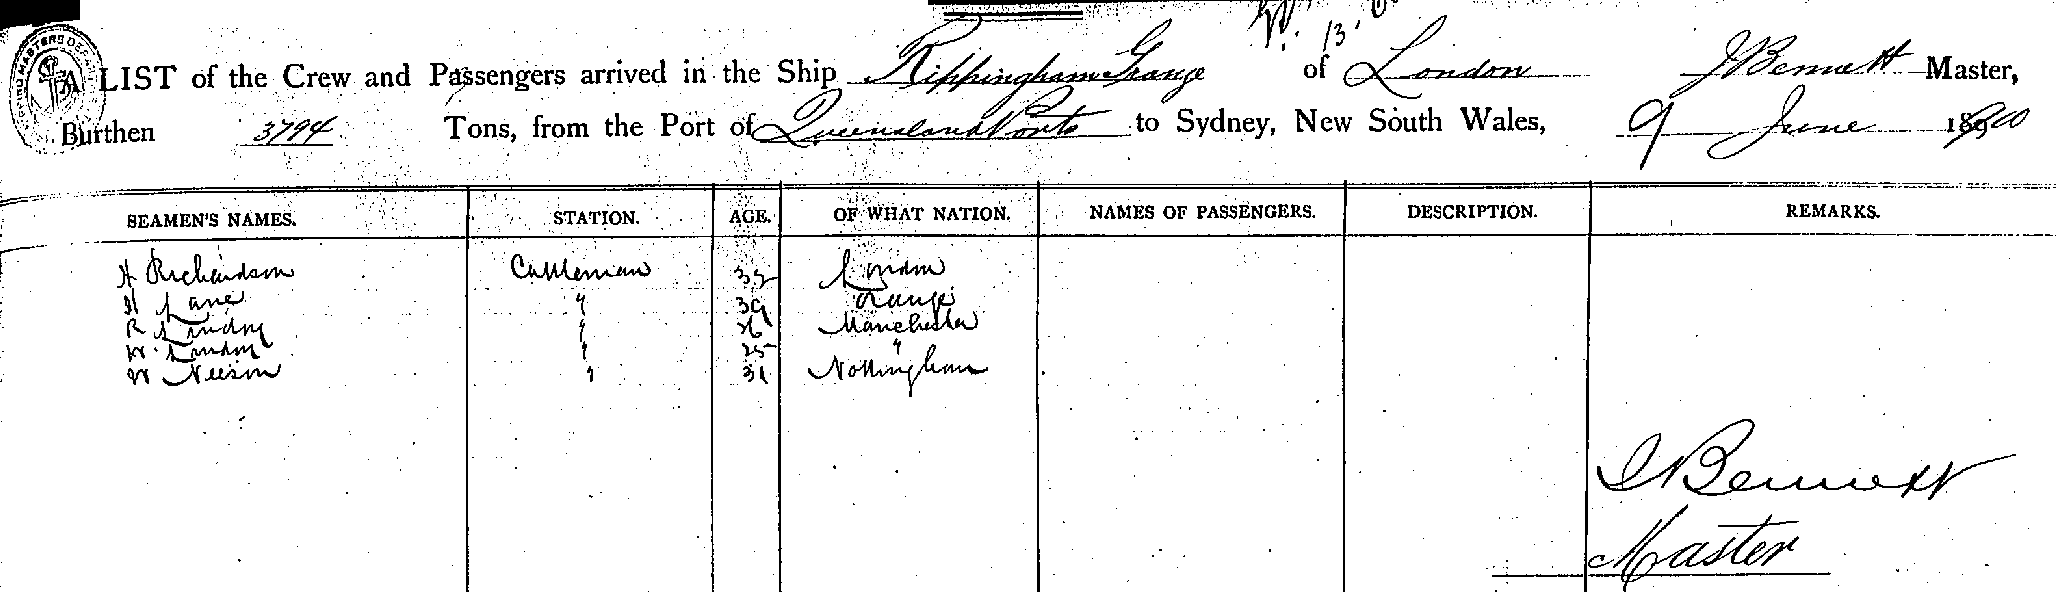 A LIST of the Crew and Passengers arrived in the Ship Rippingham Grange of London J Bennett Master,
Burthen 3794 Tons, from the Port of Queensland Ports to Sydney, New South Wales, 9 June 1900
SEAMEN'S NAMES. STATION. AGE. OF WHAT NATION. NAMES OF PASSENGERS. DESCRIPTION. REMARKS.
H Richardson Cattleman London
H Lane " 39 Orange
R Lindoy " 26 Manchester
W. Lindoy " 25 "
W Neeson " 31 Nottingham
J Bennett
Master